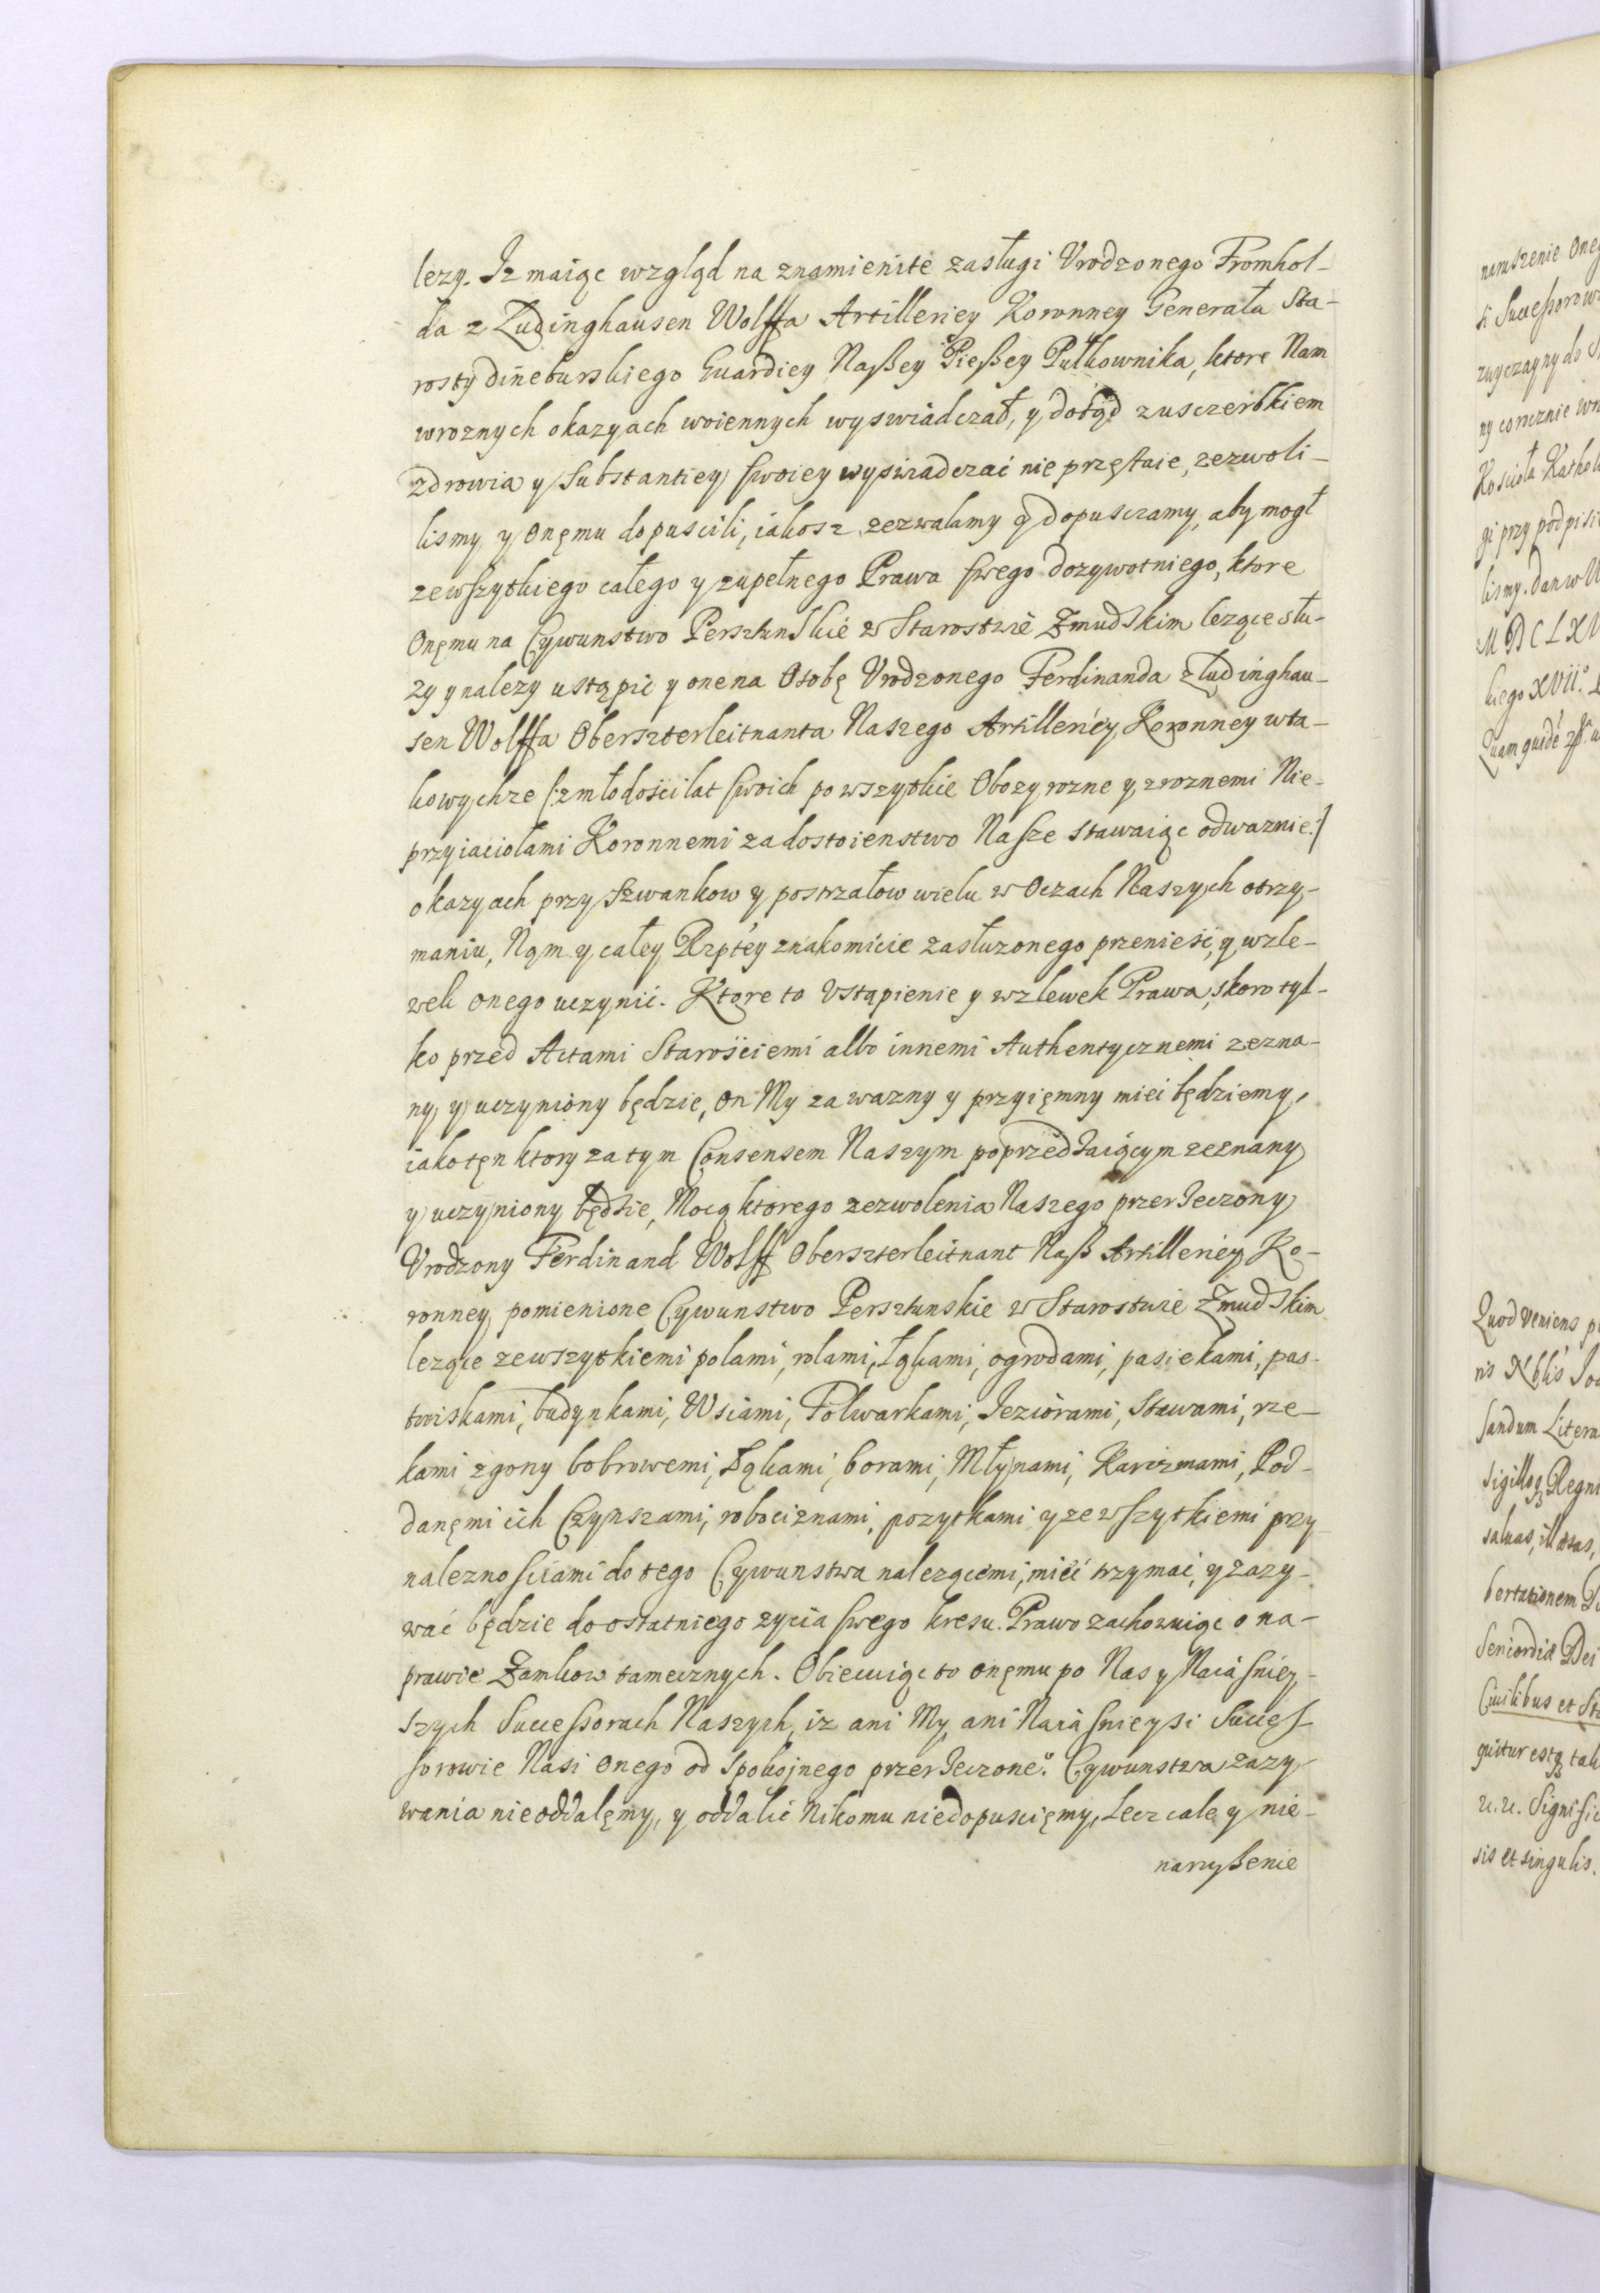 lezy. Iz maiąc wzgląd na znamienite zasługi Vrodzonego Fromhol-
da z Ludinghausen Wolffa Artilleriey Koronney Generała Sta-
rosty dineburskiego Guardiey Naßey Pießey Pułkownika, ktore Nam
wroznych okazyach woiennych wyswiadczał, y dotąd zusczerbkiem
zdrowia y Substantiey swoiey wyswiadczać nie przestaie, zezwoli-
lismy y onęmu dopuscili, iakosz zezwalamy y dopusczamy, aby mogł
zewszytkiego całego y zupełnego Prawa swego dozywotniego, ktore
Onęmu na Cywunstwo Persztunskie w Starostwie Zmudskim lezące słu-
zy y nalezy ustąpić y one na Osobę Vrodzonego Ferdinanda z Ludinghau-
sen Wolffa Oberszterleitnanta Naszego Artilleriey Koronney wta-
kowychze /:zmłodości lat swoich po wszytkie Obozy rozne y zroznemi Nie-
przyiaciołami Koronnemi za dostoienstwo Nasze stawaiąc odwaznie:/
okazyach przy Szwankow y postrzałow wielu w Oczach Naszych otrzy-
maniu, Nąm y całey Rzptey znakomicie zasłuzonego przenieść, y wzle-
wek onego uczynić. Ktore to Vstąpienie y wzlewek Prawa, skoro tyl-
ko przed Actami Starościemi albo innemi Authentycznemi zezna-
ny y uczyniony będzie, on My za wazny y przyięmny mieć będziemy,
iako tęn ktory za tym Consensem Naszym poprzedzaiącym zeznany
y uczyniony będzie, Mocą ktorego zezwolenia Naszego przerzeczony
Vrodzony Ferdinand Wolff Oberszterleitnant Naß Artilleriey Ko-
ronney pomienione Cywunstwo Persztunskie w Starostwie Zmudskim
lezące zewszytkiemi polami, rolami, Łąkami, ogrodami, pasiekami, pas-
twiskami, budynkami, Wsiami, Folwarkami, Ieziorami, Stawami, rze-
kami zgony bobrowemi, Łąkami, borami, Młynami, Karczmami, Pod-
danęmi ich Czynszami, robociznami, pozytkami y zewszytkiemi przy
naleznosciami do tego Cywunstwa nalezącemi, mieć trzymać, y zazy-
wać będzie do ostatniego zycia swego kresu. Prawo zachowuiąc o na-
prawie Zamkow tamecznych. Obiecuiąc to onęmu po Nas y Naiásniey-
szych Successorach Naszych, iz ani My, ani Naiásnieysi Succes-
sorowie Nasi onego od spokojnego przerzeczone.º Cywunstwa zazy-
wania nie oddalęmy, y oddalić Nikomu niedopuscięmy, Lecz całe y nie-
narußenie